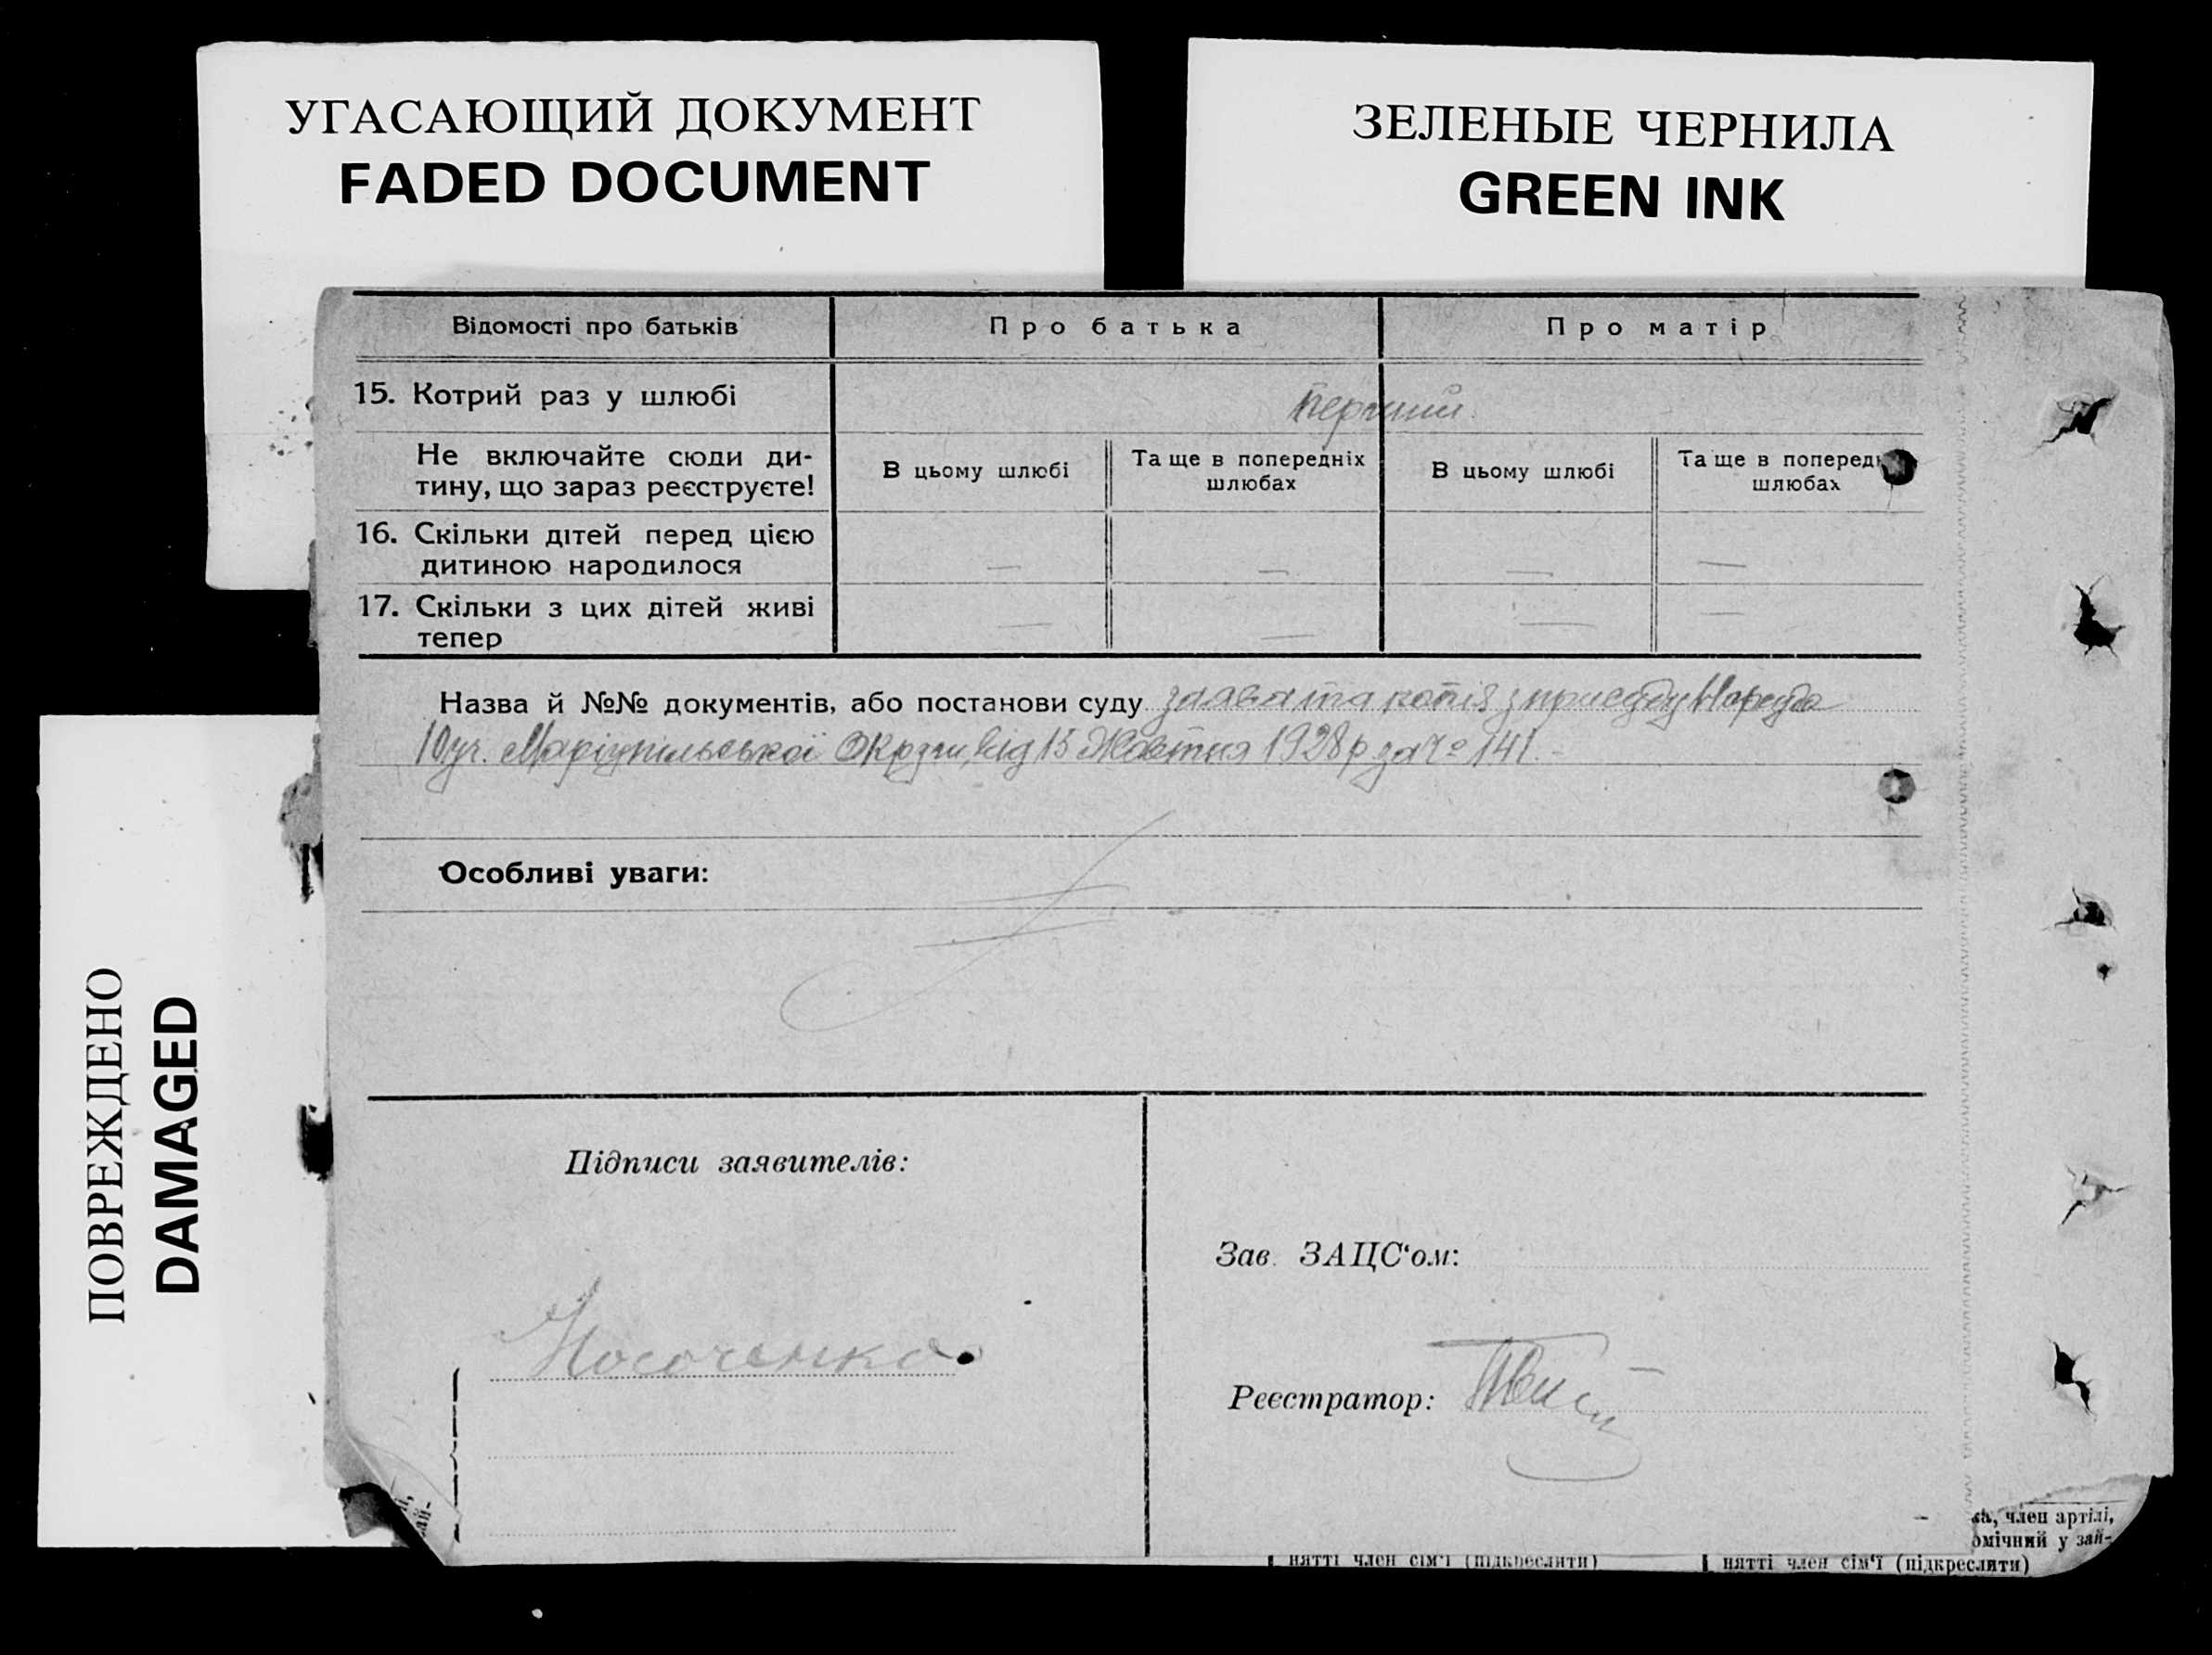 УГАСАЮЩИЙ ДОКУМЕНТ
FADED DOCUMENT
ЗЕЛЕНЫЕ ЧЕРНИЛА
GREEN INK
ПОВРЕЖДЕНО
DAMAGED
Відомості про батьків
Про батька
Про матір
15. Котрий раз у шлюбі
перший.
Не включайте сюди ди-
тину, що зараз реєструєте!
В цьому шлюбі
Та ще в попередніх
шлюбах
В цьому шлюбі
Та ще в поперед
шлюбах
16. Скільки дітей перед цією
дитиною народилося
— — — —
17. Скільки з цих дітей живі
тепер
— — — —
Назва й №№ документів, або постанови суду заява та копія з присуду Нарсуда
10 уч. Маріупільської Округи, від 15 Жовтня 1928 р за № 141.
Особливі уваги:
Підписи заявителів:
Носоченко
Зав. ЗАЦС‘ом:
Реєстратор:
ка, член артілі,
омічний у зай-
нятті член сім‘ї (підкреслити)
нятті член сім‘ї (підкреслити)